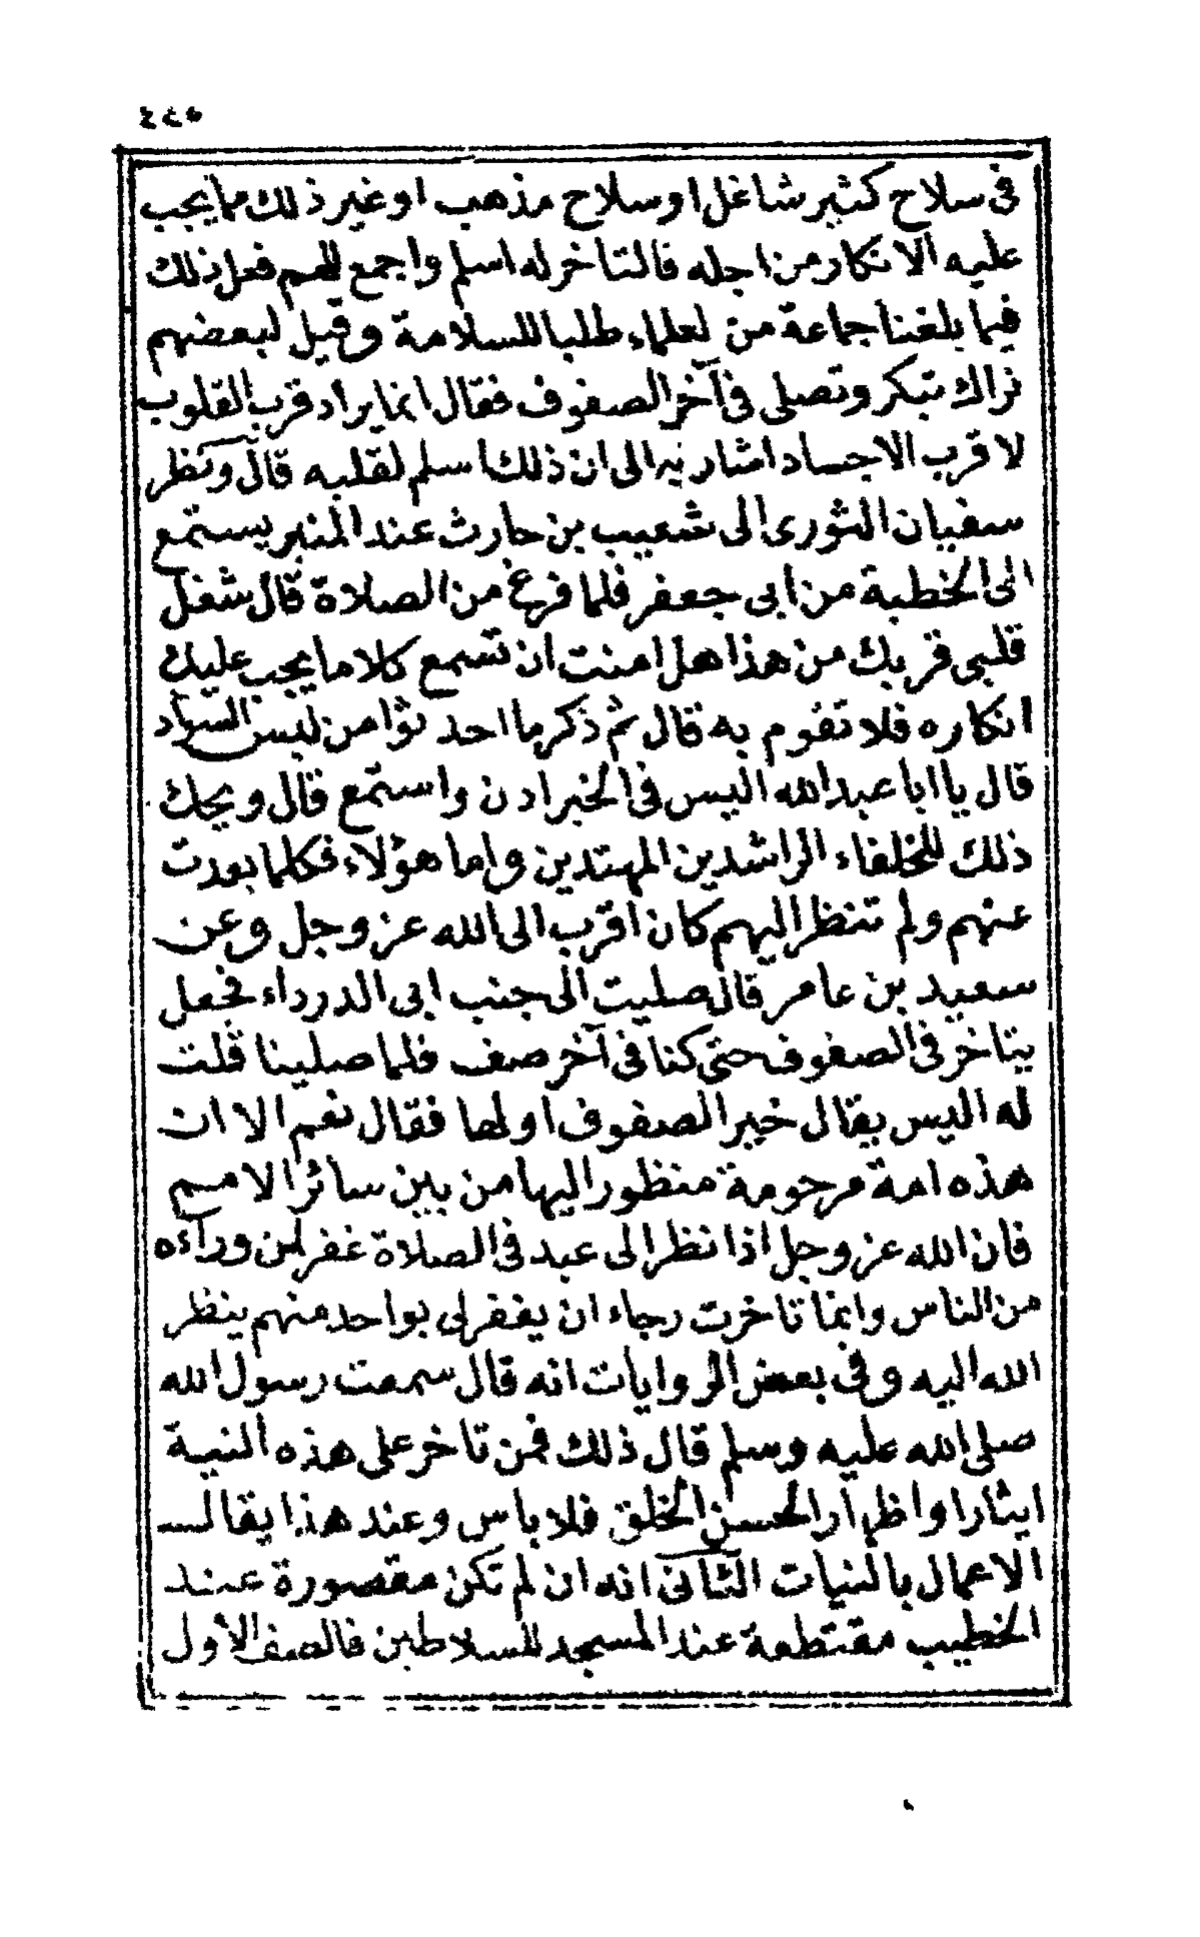 ٤٤٥
فى سلاح كثير شاغل او سلاح مذهب او غير ذلك مما يجب
عليه الانكار من اجله فالتاخر له اسلم واجمع للهم فعل ذلك
فيما بلغنا جماعة من لعلماء طلبا للسلامة وقيل لبعضهم
نراك تبكر وتصلى فى آخر الصفوف فقال انما يراد قرب القلوب
لا قرب الاجساد اشار به الى ان ذلك اسلم لقلبه قال ونظر
سفيان الثورى الى شعيب بن حارث عند المنبر يستمع
الى الخطبة من ابى جعفر فلما فرغ من الصلاة قال شغل
قلبى قربك من هذا هل امنت ان تسمع كلاما يجب عليك
انكاره فلا تقوم به قال ثم ذكر ما احدثوا من لبس السواد
قال يا ابا عبد الله اليس فى الخبر ادن واستمع قال ويحك
ذلك للخلفاء الراشدين المهتدين واما هؤلاء فكلما بعدت
عنهم ولم تنظر اليهم كان اقرب الى الله عز وجل وعن
سعيد بن عامر قال صليت الى جنب ابى الدرداء فجعل
يتاخر فى الصفوف حتى كنا فى آخر صف فلما صلينا قلت
له اليس يقال خير الصفوف اولها فقال نعم الا ان
هذه امة مرحومة منظور اليها من بين سائر الامم
فان الله عز وجل اذا نظر الى عبد فى الصلاة غفر لمن وراءه
من الناس وانما تاخرت رجاء ان يغفر لى بواحد منهم ينظر
الله اليه وفى بعض الروايات انه قال سمعت رسول الله
صلى الله عليه وسلم قال ذلك فمن تاخر على هذه النية
ايثارا واظهارا لحسن الخلق فلا باس وعند هذا يقال
الاعمال بالنيات الثانى انه ان لم تكن مقصورة عند
الخطيب مقتطعة عند المسجد للسلاطين فالصف الاول